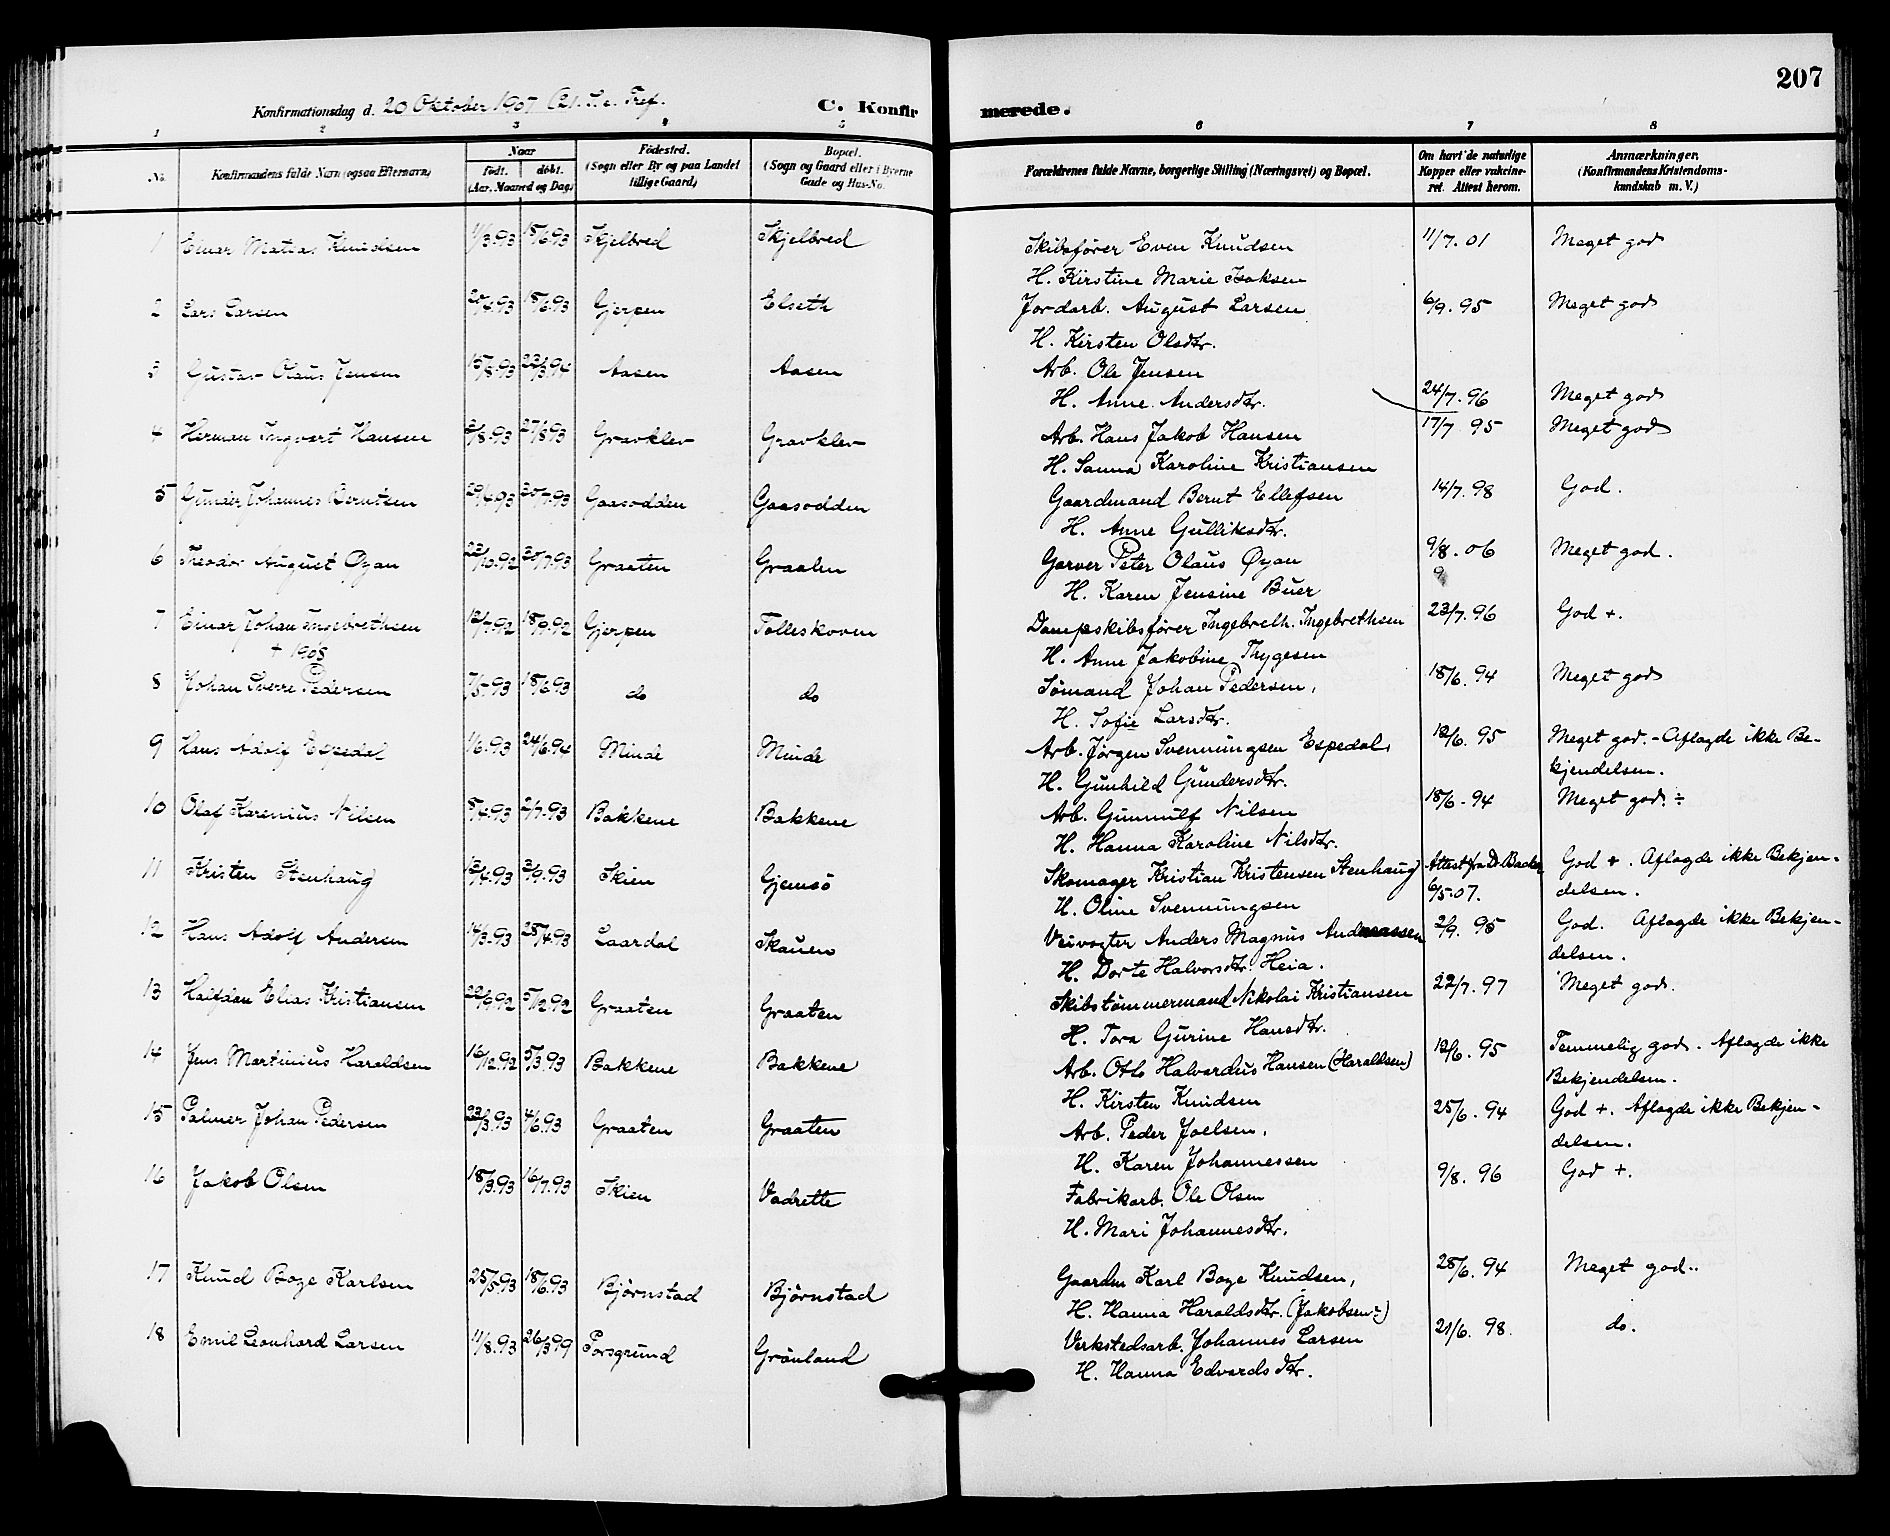 207
Konfirmationsdag d. 20 Oktober 1907
C. Konfirmerede.
1 2 3 4 5 6 7 8
No.
Konfirmandens fulde Navn (ogsaa Efternavn)
Naar
födt. döbt.
(Aar, Maaned og Dag)
Födested.
(Sogn eller By og paa Landet
tillige Gaard)
Bopæl.
(Sogn og Gaard eller i Byerne
Gade og Hus-No.
Forældrenes fulde Navne, borgerlige Stilling (Næringsvei) og Bopæl.
Om havt de naturlige
Kopper eller vakcine-
ret. Attest herom.
Anmærkninger.
(Konfirmandens Kristendoms-
kundskab m. V.)
1 Einar Matias Knudsen 11/3.93 18/6.93 Skjelbred Skjelbred Skibsfører Even Knudsen 11/7.01 Meget god
H. Kirstine Marie Isaksen
2 Lars Larsen 20/4.93 18/6.93 Gjerpen Elseth Jordarb. August Larsen 6/9.95 Meget god
H. Kirsten Olsdtr.
3 Gustav Olaus Jensen 15/8.93 23/3.94 Aasen Aasen Arb. Ole Jensen
H. Anne Andersdtr. 24/7.96 Meget god
4 Herman Ingvart Hansen 2/8.93 27/8.93 Gravklev Gravklev Arb. Hans Jakob Hansen 17/7 95 Meget god
H. Sanna Karoline Kristiansen
5 Gunder Johannes Berntsen 29/4.93 30/7.93 Gaasodden Gaasodden Gaardmand Bernt Ellefsen 14/7.98 God.
H. Anne Gulliksdtr.
6 Theodor August Øyan 23/10.92 30/7.93 Graaten Graaten Garver Peter Olaus Øyan 9/8.06 Meget god.
H. Karen Jensine Buer
7 Einar Johan Ingebrethsen 12/7.92 18/9.92 Gjerpen Tolleskoven Dampskibsfører Ingebreth. Ingebrethsen 23/7.96 God +.
+ 1908
H. Anne Jakobine Thygesen
8 Johan Sverre Pedersen 7/5.93 18/6.93 do do Sømand Johan Pedersen, 18/6.94 Meget god
H. Sofie Larsdtr.
9 Hans Adolf Espedal 1/6.93 24/6.94 Minde Minde Arb. Jørgen Svenningsen Espedal, 12/6.95 Meget god.-Aflagde ikke Be-
H. Gunhild Gundersdtr. kjendelsen.
10 Olaf Karenius Nilsen 8/4.93 2/7.93 Bakkene Bakkene Arb. Gunnulf Nilsen 18/6-94 Meget god. ÷
H. Hanna Karoline Nilsdtr.
11 Kristen Stenhaug 13/4.93 3/9.93 Skien Gjemsø Skomager Kristian Kristensen Stenhaug Attest fra Dr. Backer God +. Aflagde ikke Bekjen-
H. Oline Svenningsen 6/5.07. delsen.
12 Hans Adolf Andersen 14/3.93 28/4.93 Laardal Skauen Veivogter Anders Magnus Andreassen 2/9.95 God. Aflagde ikke Bekjen-
H. Dorte Halvorsdtr. Heia. delsen.
13 Halfdan Elias Kristiansen 22/9.92 5/12.92 Graaten Graaten Skibstømmermand Nikolai Kristiansen 22/7.97 Meget god.
H. Tora Gurine Hansdtr.
14 Jens Martinius Haraldsen 16/12.92 5/3.93 Bakkene Bakkene Arb. Otto Halvardus Hansen (Haraldsen) 12/6.95 Temmelig god. Aflagde ikke
H. Kirsten Knudsen Bekjendelsen.
15 Palmer Johan Pedersen 23/3.93 4/6.93 Graaten Graaten Arb. Peder Joelsen. 25/6.94 God +. Aflagde ikke Bekjen-
H. Karen Johannessen delsen.
16 Jakob Olsen 18/3.93 16/7.93 Skien Vadrette Fabrikarb. Ole Olsen 9/8.96 God +.
H. Mari Johannesdtr.
17 Knud Boge Karlsen 25/5.93 18/6.93 Bjørnstad Bjørnstad Gaardm Karl Boge Knudsen, 28/6.94 Meget god..
H. Hanna Haraldsdtr. (Jakobsen ÷)
18 Emil Leonhard Larsen 11/8.93 26/3.99 Porsgrund Grønland Verkstedsarb. Johannes Larsen 21/6.98. do.
H. Hanna Edvardsdtr.